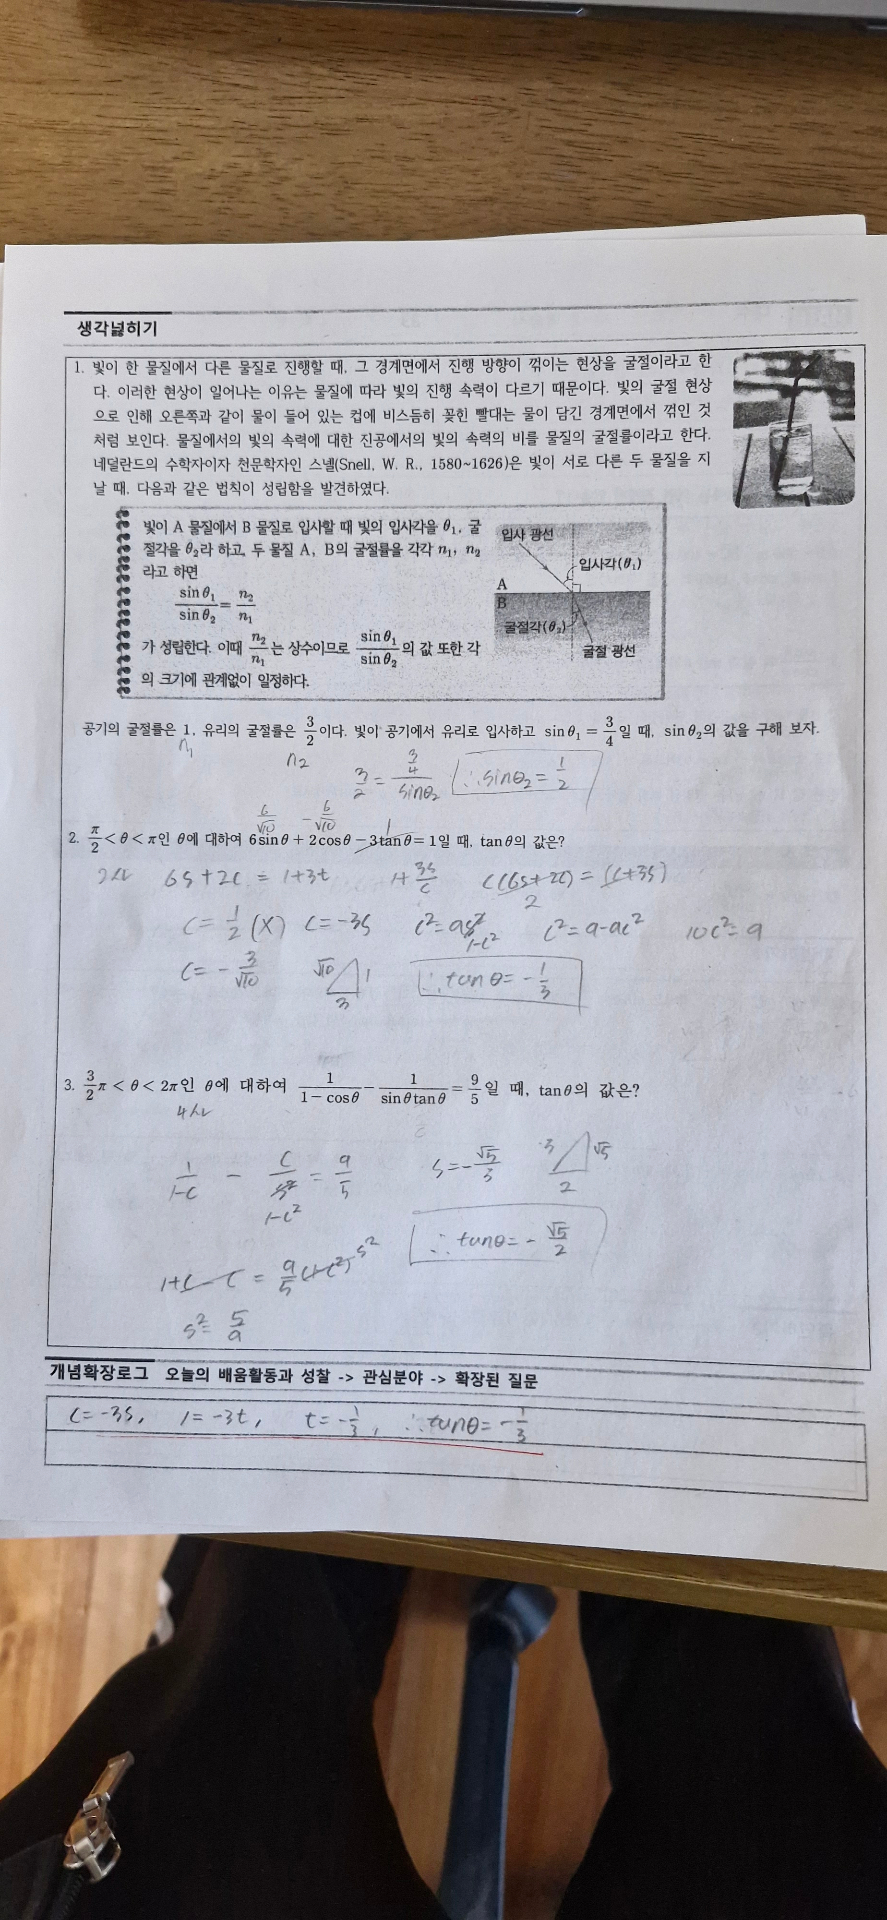 생각넓히기
1. 빛이 한 물질에서 다른 물질로 진행할 때, 그 경계면에서 진행 방향이 꺾이는 현상을 굴절이라고 한
다. 이러한 현상이 일어나는 이유는 물질에 따라 빛의 진행 속력이 다르기 때문이다. 빛의 굴절 현상
으로 인해 오른쪽과 같이 물이 들어 있는 컵에 비스듬히 꽂힌 빨대는 물이 담긴 경계면에서 꺾인 것
처럼 보인다. 물질에서의 빛의 속력에 대한 진공에서의 빛의 속력의 비를 물질의 굴절률이라고 한다.
네덜란드의 수학자이자 천문학자인 스넬(Snell, W. R., 1580~1626)은 빛이 서로 다른 두 물질을 지
날 때, 다음과 같은 법칙이 성립함을 발견하였다.
빛이 A 물질에서 B 물질로 입사할 때 빛의 입사각을 θ₁, 굴
절각을 θ₂라 하고, 두 물질 A, B의 굴절률을 각각 n₁, n₂
라고 하면
sinθ₁/sinθ₂ = n₂/n₁
가 성립한다. 이때 n₂/n₁는 상수이므로 sinθ₁/sinθ₂의 값 또한 각
의 크기에 관계없이 일정하다.
입사 광선
입사각(θ₁)
A
B
굴절각(θ₂)
굴절 광선
공기의 굴절률은 1, 유리의 굴절률은 3/2이다. 빛이 공기에서 유리로 입사하고 sinθ₁ = 3/4일 때, sinθ₂의 값을 구해 보자.
n₁
n₂
3/2 = (3/4)/sinθ₂ ∴sinθ₂ = 1/2
6/√10 -6/√10 1
2. π/2<θ<π인 θ에 대하여 6sinθ+2cosθ-3tanθ=1일 때, tanθ의 값은?
2사 6s+2c = 1+3t 1+3s/c c(6s+2c) = (c+3s)
2
c = 1/2 (X) c = -3s c² = 9s² c² = 9-9c² 10c² = 9
1-c²
c = -3/√10 √10 1 3 ∴tanθ = -1/3
3. 3/2π<θ<2π인 θ에 대하여 1/(1-cosθ) - 1/(sinθtanθ) = 9/5일 때, tanθ의 값은?
4사
1/(1-c) - c/s² = 9/5 s = -√5/3 3 √5 2
1-c²
∴tanθ = -√5/2
1+c-c = 9/5(1-c²) s²
s² = 5/9
개념확장로그 오늘의 배움활동과 성찰 -> 관심분야 -> 확장된 질문
c = -3s, 1 = -3t, t = -1/3, ∴tanθ = -1/3